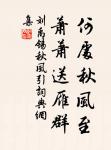 何處秋風至
蕭蕭送雁群
劉禹錫秋風引詞典網
集